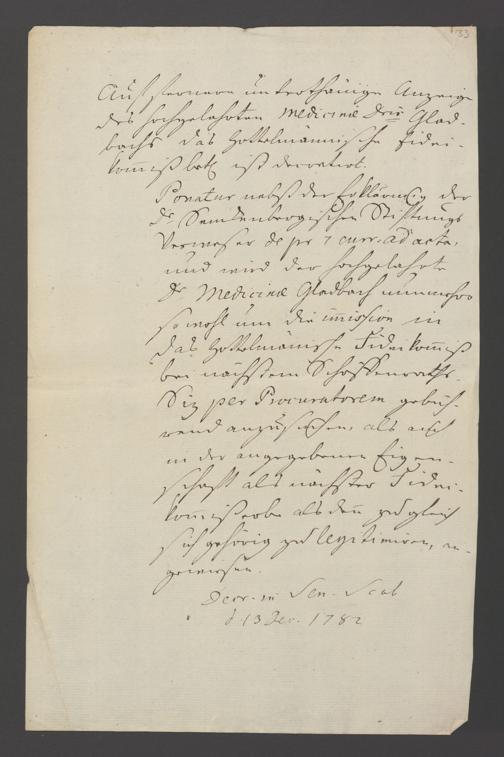 133
Auf fernere unterthänige Anzeige
des hochgelahrten Medicinæ Dris Glad-
bachs das Gottelmännische Fidei-
kommiß betr. ist decretirt.
Ponatur nebst der Erklärung der
Dr. Senckenbergischen Stiftungs
Verweser de pr. 7 curr. ad acta,
und wird der hochgelahrte
Dr. Medicinæ Gladbach nunmehro
sowohl um die immission in
das Gottelmännische Fideikommiß
bei nächstem Schöffenraths-
Siz per Procuratorem gebüh-
rend anzusuchen, als auch
in der angegebenen Eigen-
schafft als nächster Fidei-
kommißerbe alsdenn zugleich
sich gehörig zu legitimiren, an-
gewiesen.
Decr. in Sen. Scab
d. 13 Dec. 1782